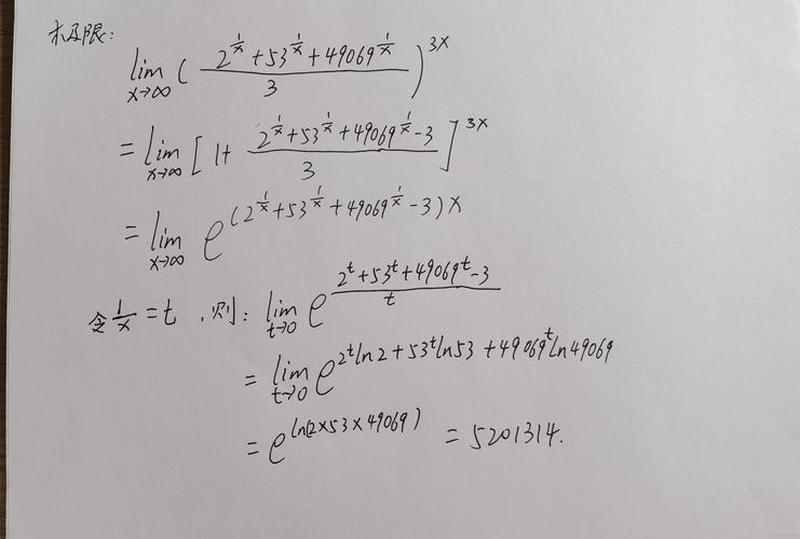 求极限:
lim_{x→∞} ( (2^{1/x} + 53^{1/x} + 49069^{1/x}) / 3 )^{3x}
= lim_{x→∞} [ 1 + (2^{1/x} + 53^{1/x} + 49069^{1/x} - 3) / 3 ]^{3x}
= lim_{x→∞} e^{(2^{1/x} + 53^{1/x} + 49069^{1/x} - 3) x}
令 1/x = t , 则: lim_{t→0} e^{(2^t + 53^t + 49069^t - 3) / t}
= lim_{t→0} e^{2^t ln2 + 53^t ln53 + 49069^t ln49069}
= e^{ln(2×53×49069)} = 5201314.